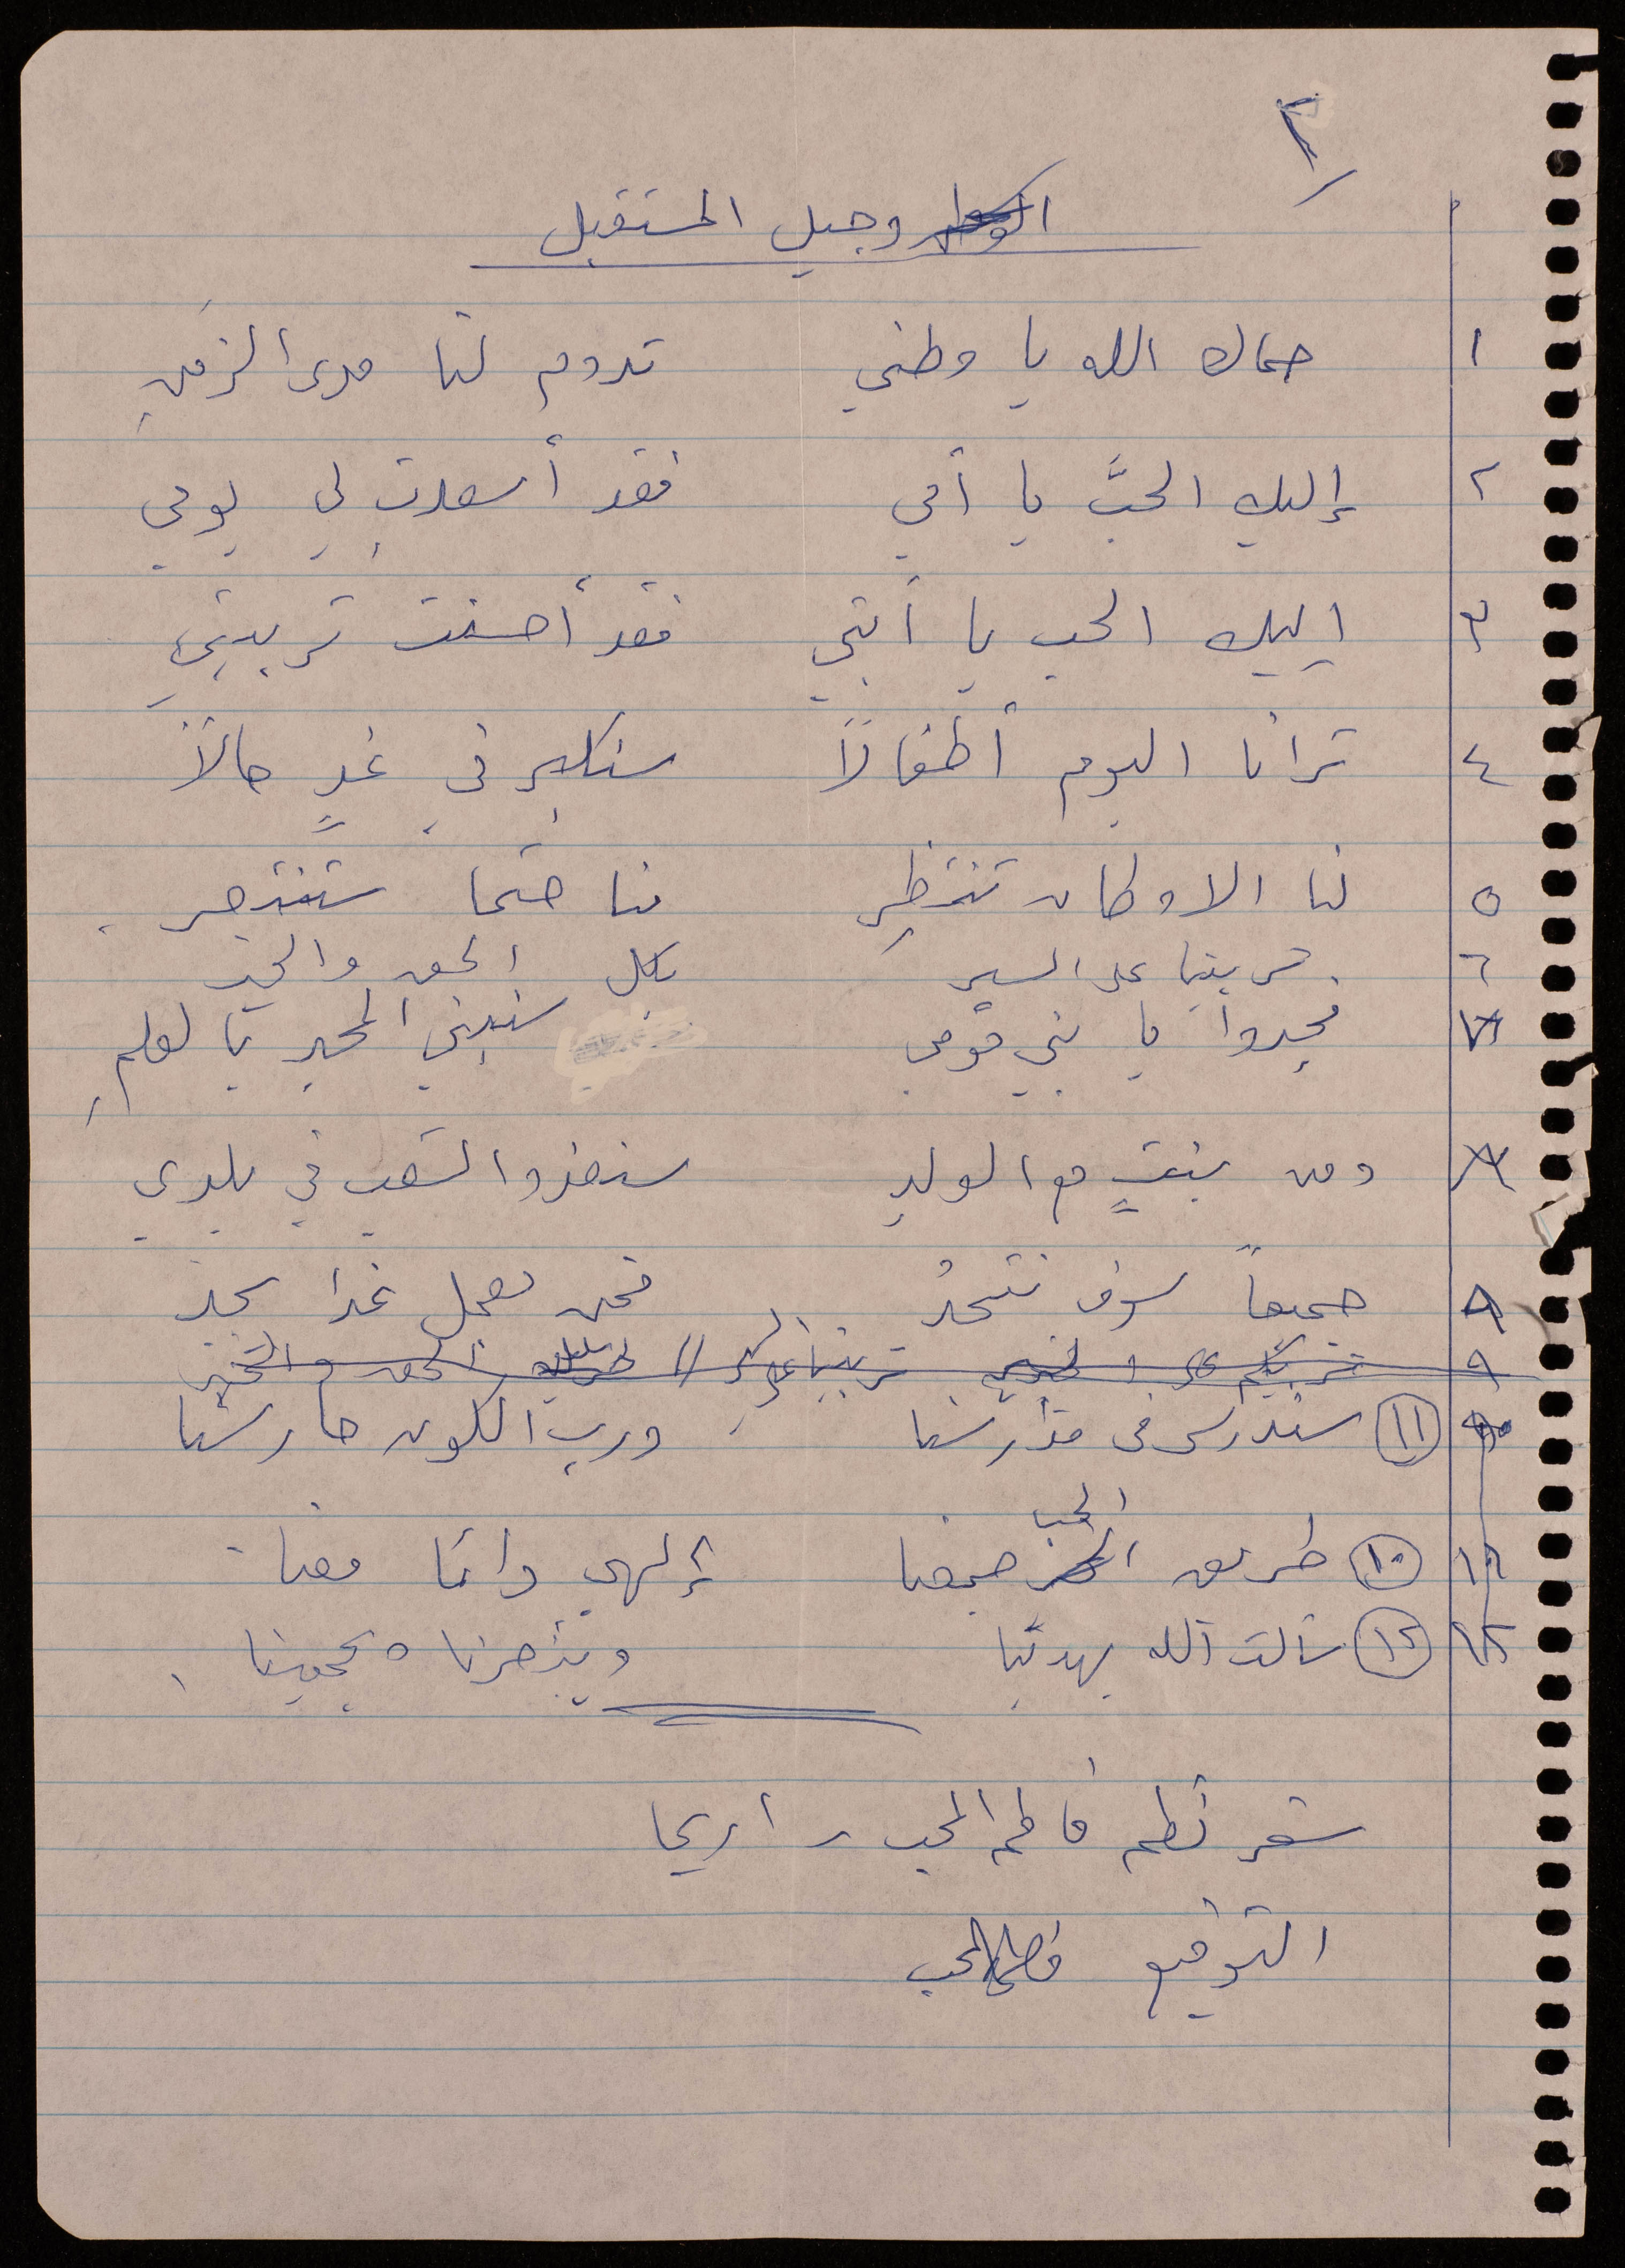 ٢
الوطن وجيل المستقبل
١ حماك الله يا وطني تدوم لنا مدى الزمنِ
٢ إليك الحبَّ يا أمي فقد أسعدتِ لي يومي
٣ اليك الحب يا أبتي فقد أحسنت تربيتي
٤ ترانا اليوم أطفالاً سنكبر في غدٍ حالاً
٥ لنا الاوطان تنتظر بنا حتما ستنتصر
٦ تربينا على السير بكل الحق والخير
٧ فجدوا يا بني قومي سنبني المجد بالعلمِ
٨ ومن بنتٍ مع الولدِ سنغزوا الشعب في بلدي
٩ جميعاً سوف نتحدُ فمن يعمل غدا يجد
٩ تربينا على السير الحق والخير
١١ سندرس في مدارسنا ورب الكون حارسنا
١٠ طريق الحب جمعنا إلهي دائما معنا
١٢ سألت الله يهدينا وينصرنا ويحمينا
شعر نظم فاطمة المحب - اريحا
التوقيع فاطمة المحب